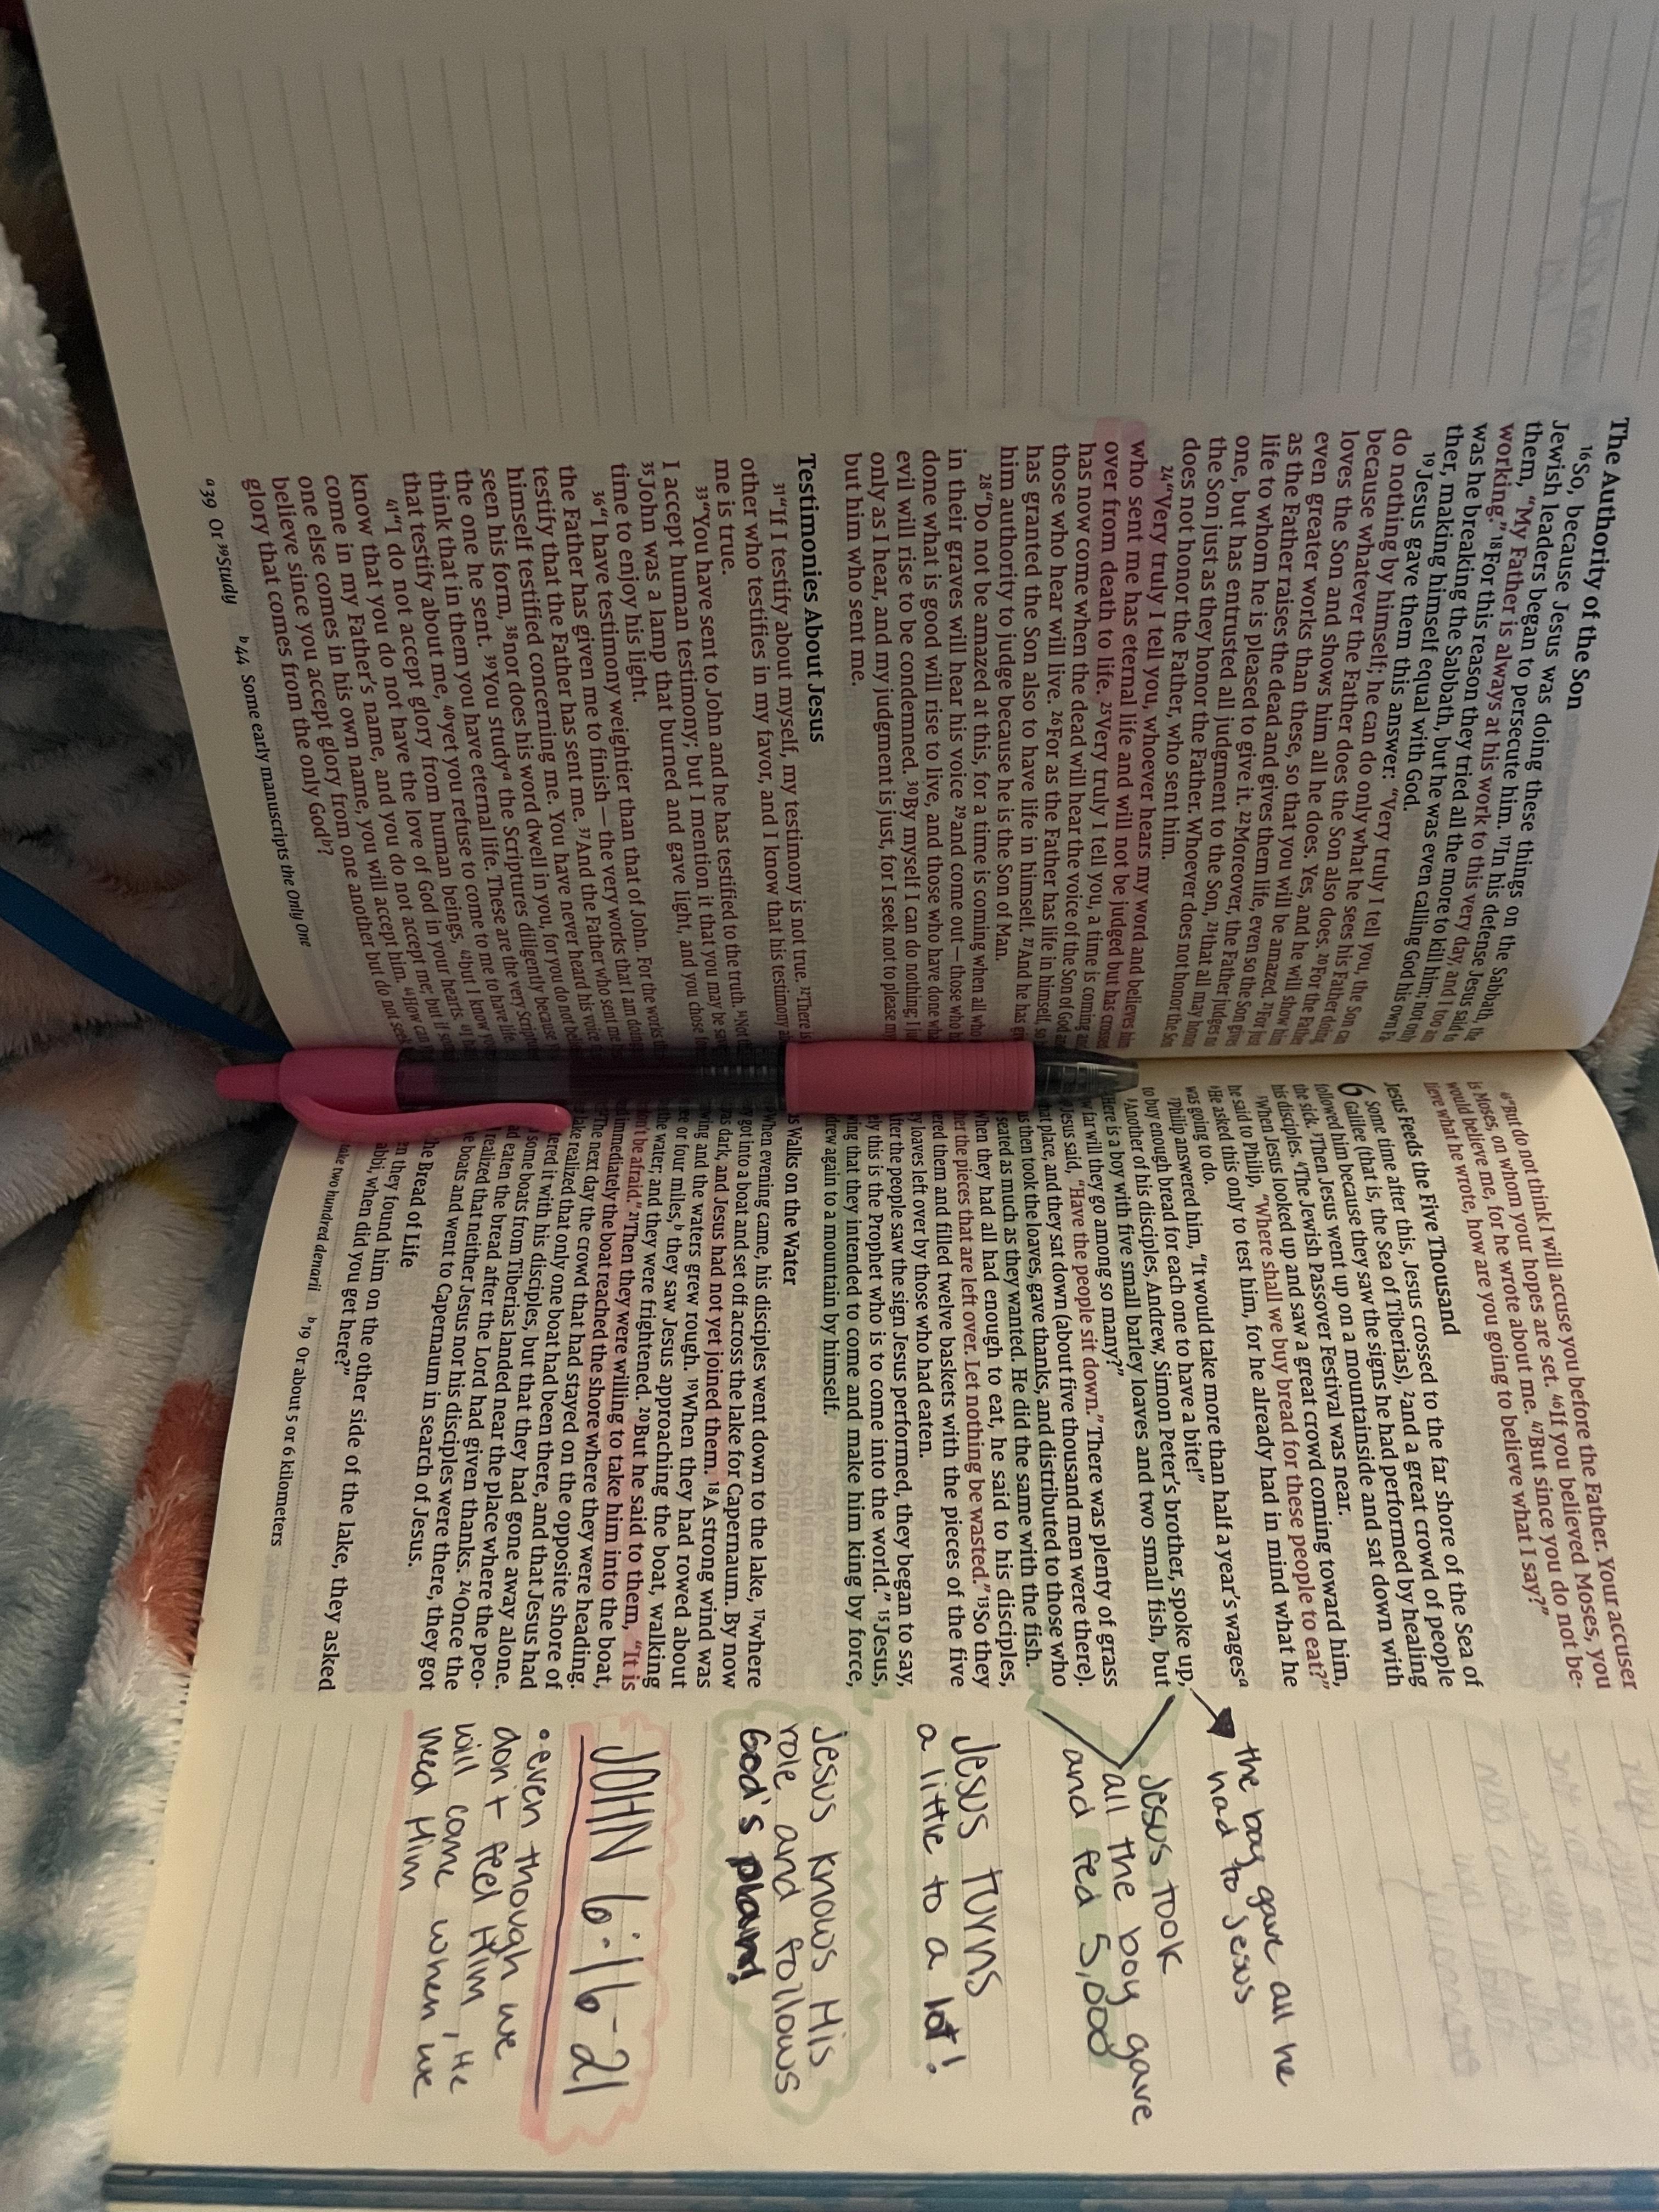 The Authority of the Son
16So, because Jesus was doing these things on the Sabbath, the
Jewish leaders began to persecute him. 17In his defense Jesus said to
them, “My Father is always at his work to this very day, and I too am
working.” 18For this reason they tried all the more to kill him; not only
was he breaking the Sabbath, but he was even calling God his own Fa-
ther, making himself equal with God.
19Jesus gave them this answer: “Very truly I tell you, the Son can
do nothing by himself; he can do only what he sees his Father doing,
because whatever the Father does the Son also does. 20For the Father
loves the Son and shows him all he does. Yes, and he will show him
even greater works than these, so that you will be amazed. 21For just
as the Father raises the dead and gives them life, even so the Son gives
life to whom he is pleased to give it. 22Moreover, the Father judges no
one, but has entrusted all judgment to the Son, 23that all may honor
the Son just as they honor the Father. Whoever does not honor the Son
does not honor the Father, who sent him.
24“Very truly I tell you, whoever hears my word and believes him
who sent me has eternal life and will not be judged but has crossed
over from death to life. 25Very truly I tell you, a time is coming and
has now come when the dead will hear the voice of the Son of God and
those who hear will live. 26For as the Father has life in himself, so
has granted the Son also to have life in himself. 27And he has
him authority to judge because he is the Son of Man.
28“Do not be amazed at this, for a time is coming when all who
in their graves will hear his voice 29and come out — those who
done what is good will rise to live, and those who have done
evil will rise to be condemned. 30By myself I can do nothing; I
only as I hear, and my judgment is just, for I seek not to please
but him who sent me.
Testimonies About Jesus
31“If I testify about myself, my testimony is not true. 32There is
other who testifies in my favor, and I know that his testimony
me is true.
33“You have sent to John and he has testified to the truth. 34Not
I accept human testimony; but I mention it that you may be
35John was a lamp that burned and gave light, and you chose
time to enjoy his light.
36“I have testimony weightier than that of John. For the works
the Father has given me to finish — the very works that I am
testify that the Father has sent me. 37And the Father who sent me
himself testified concerning me. You have never heard his voice
seen his form, 38nor does his word dwell in you, for you do not
the one he sent. 39You studya the Scriptures diligently because
think that in them you have eternal life. These are the very
that testify about me, 40yet you refuse to come to me to have life.
41“I do not accept glory from human beings, 42but I know
know that you do not have the love of God in your hearts.
come in my Father’s name, and you do not accept me; but if
one else comes in his own name, you will accept him. 44How can
believe since you accept glory from one another but do not seek
glory that comes from the only Godb?
a 39 Or 39Study b 44 Some early manuscripts the Only One
45“But do not think I will accuse you before the Father. Your accuser
is Moses, on whom your hopes are set. 46If you believed Moses, you
would believe me, for he wrote about me. 47But since you do not be-
lieve what he wrote, how are you going to believe what I say?”
Jesus Feeds the Five Thousand
6 Some time after this, Jesus crossed to the far shore of the Sea of
Galilee (that is, the Sea of Tiberias), 2and a great crowd of people
followed him because they saw the signs he had performed by healing
the sick. 3Then Jesus went up on a mountainside and sat down with
his disciples. 4The Jewish Passover Festival was near.
5When Jesus looked up and saw a great crowd coming toward him,
he said to Philip, “Where shall we buy bread for these people to eat?”
6He asked this only to test him, for he already had in mind what he
was going to do.
7Philip answered him, “It would take more than half a year’s wagesa
to buy enough bread for each one to have a bite!”
8Another of his disciples, Andrew, Simon Peter’s brother, spoke up,
Here is a boy with five small barley loaves and two small fish, but
far will they go among so many?”
Jesus said, “Have the people sit down.” There was plenty of grass
that place, and they sat down (about five thousand men were there).
then took the loaves, gave thanks, and distributed to those who
seated as much as they wanted. He did the same with the fish.
When they had all had enough to eat, he said to his disciples,
the pieces that are left over. Let nothing be wasted.” 13So they
them and filled twelve baskets with the pieces of the five
loaves left over by those who had eaten.
the people saw the sign Jesus performed, they began to say,
this is the Prophet who is to come into the world.” 15Jesus,
that they intended to come and make him king by force,
again to a mountain by himself.
Walks on the Water
When evening came, his disciples went down to the lake, 17where
got into a boat and set off across the lake for Capernaum. By now
was dark, and Jesus had not yet joined them. 18A strong wind was
and the waters grew rough. 19When they had rowed about
or four miles,b they saw Jesus approaching the boat, walking
the water; and they were frightened. 20But he said to them, “It is
be afraid.” 21Then they were willing to take him into the boat,
immediately the boat reached the shore where they were heading.
The next day the crowd that had stayed on the opposite shore of
realized that only one boat had been there, and that Jesus had
it with his disciples, but that they had gone away alone.
some boats from Tiberias landed near the place where the peo-
eaten the bread after the Lord had given thanks. 24Once the
realized that neither Jesus nor his disciples were there, they got
boats and went to Capernaum in search of Jesus.
the Bread of Life
they found him on the other side of the lake, they asked
when did you get here?”
two hundred denarii b 19 Or about 5 or 6 kilometers
the boy gave all he
had to Jesus
Jesus took
all the boy gave
and fed 5,000
Jesus turns
a little to a lot!
Jesus knows His
role and follows
God's plan!
JOHN 6:16-21
• even though we
don't feel Him, He
will come when we
need Him